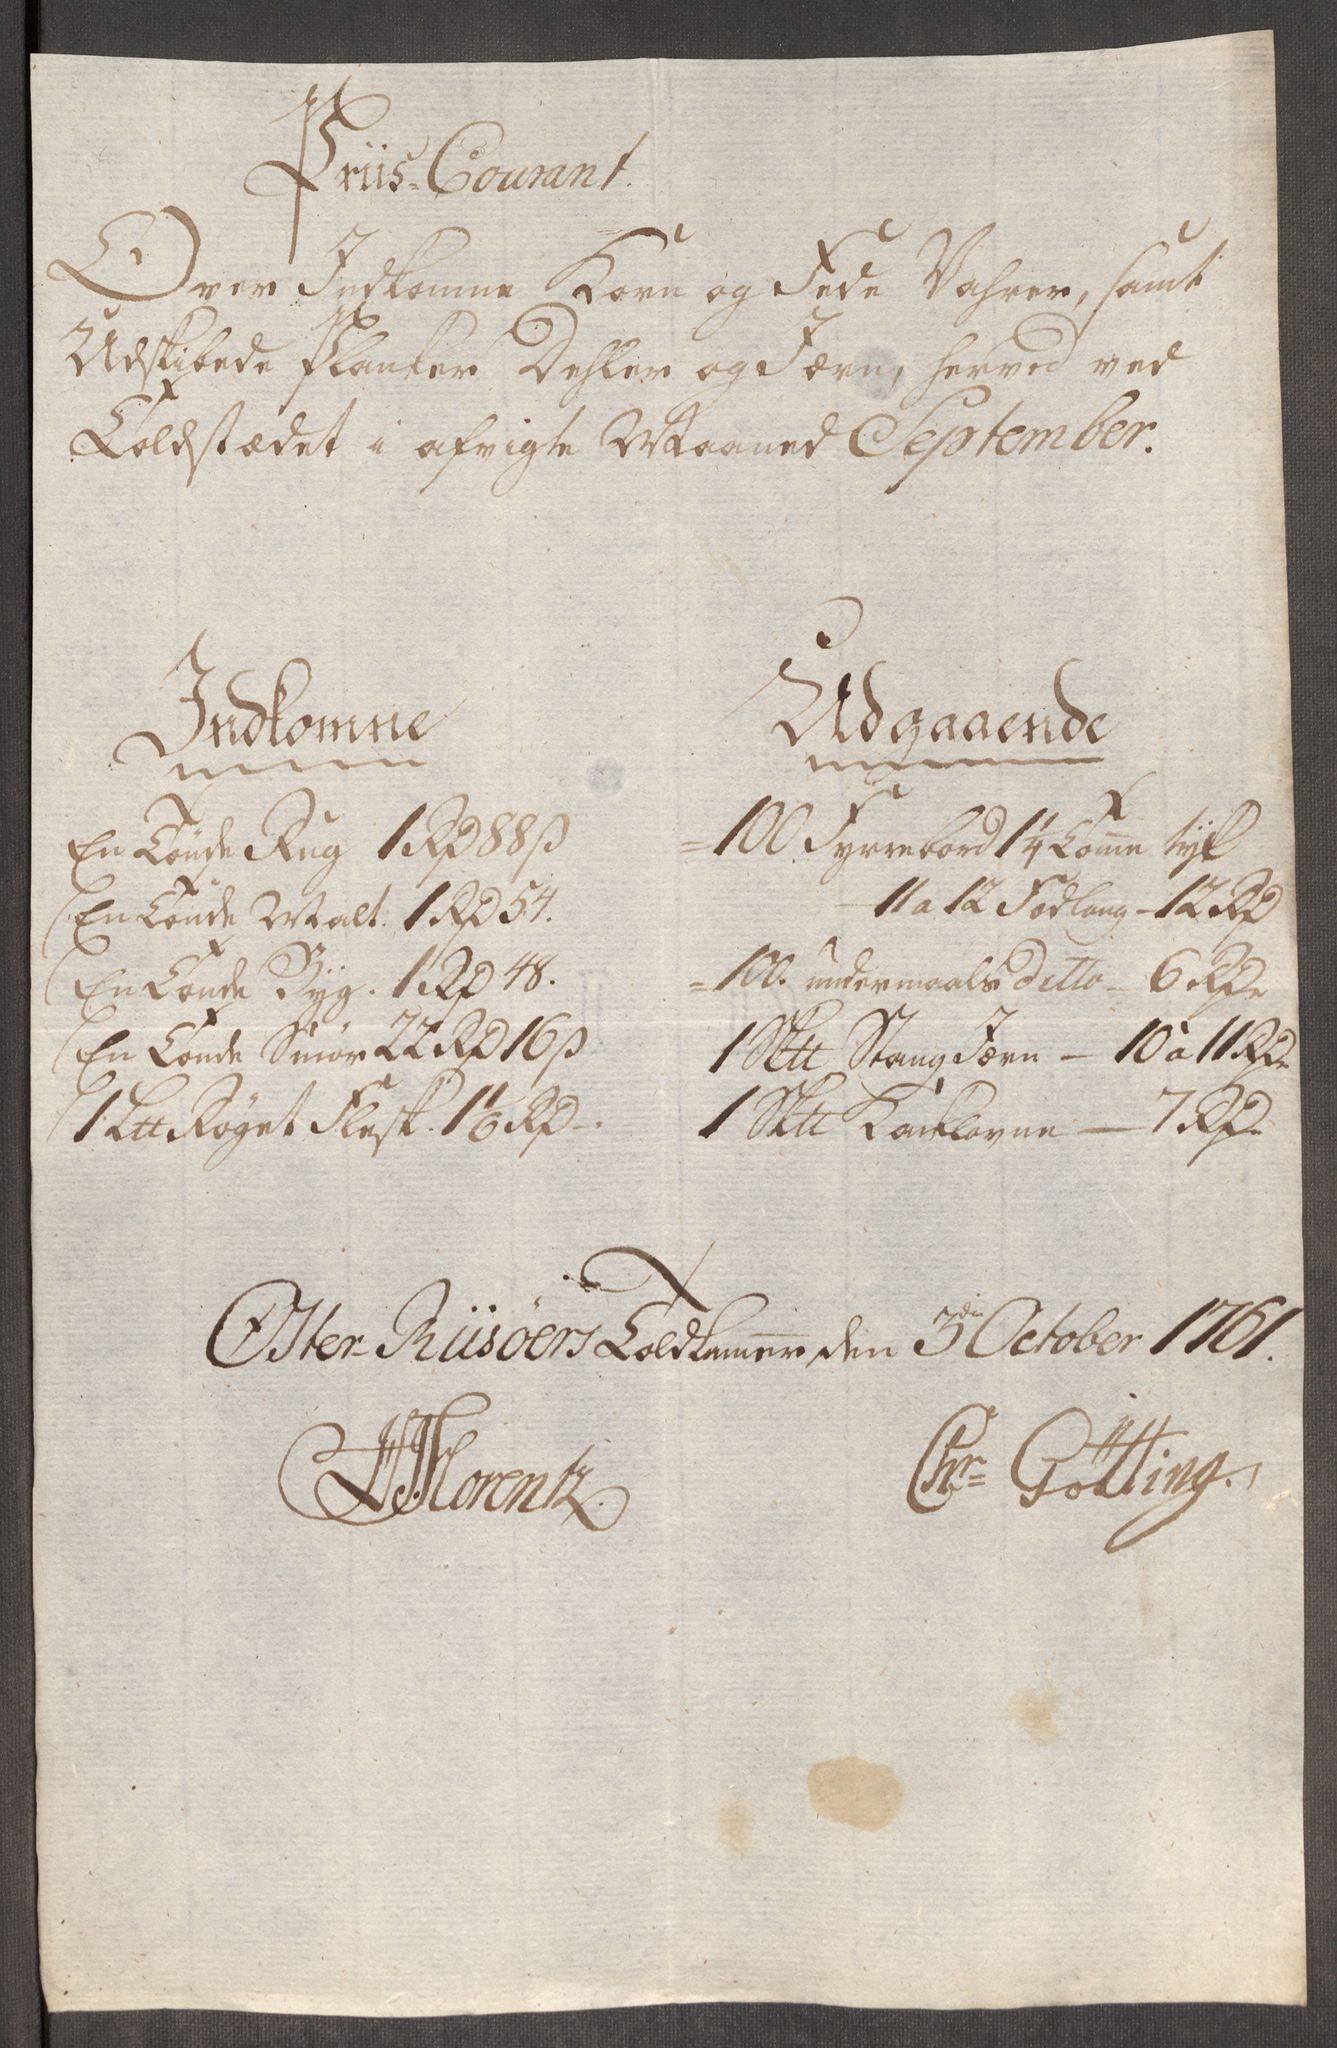 Priis-Courant.
Over Indkomne Korn og Fede Vahrer, samt
Udskibede Planker Dehler og Jærn, herved ved
Toldstædet i afvigte Maaned September.
Indkomne
En Tønde Rug 1 Rd 88 ß
En Tønde Malt. 1 Rd 54.
En Tønde Byg. 1 Rd 48.
En Tønde Smør 22 Rd 16 ß
1 Ltt Røget Flesk. 1 1/6 Rd -.
Udgaaende
= 100 Fyrrebord 1 1/4 Tomme tyk
11 a 12 Fod lang - 12 Rd
= 100. undermaals ditto - 6 Rd
1 Sktt Stang Jærn - 10 a 11 Rd
1 Sktt Kakelovne - 7 Rd
Øster-Riisøers Toldkammer den 3de October 1761.
Florentz.
Chr= Götting.